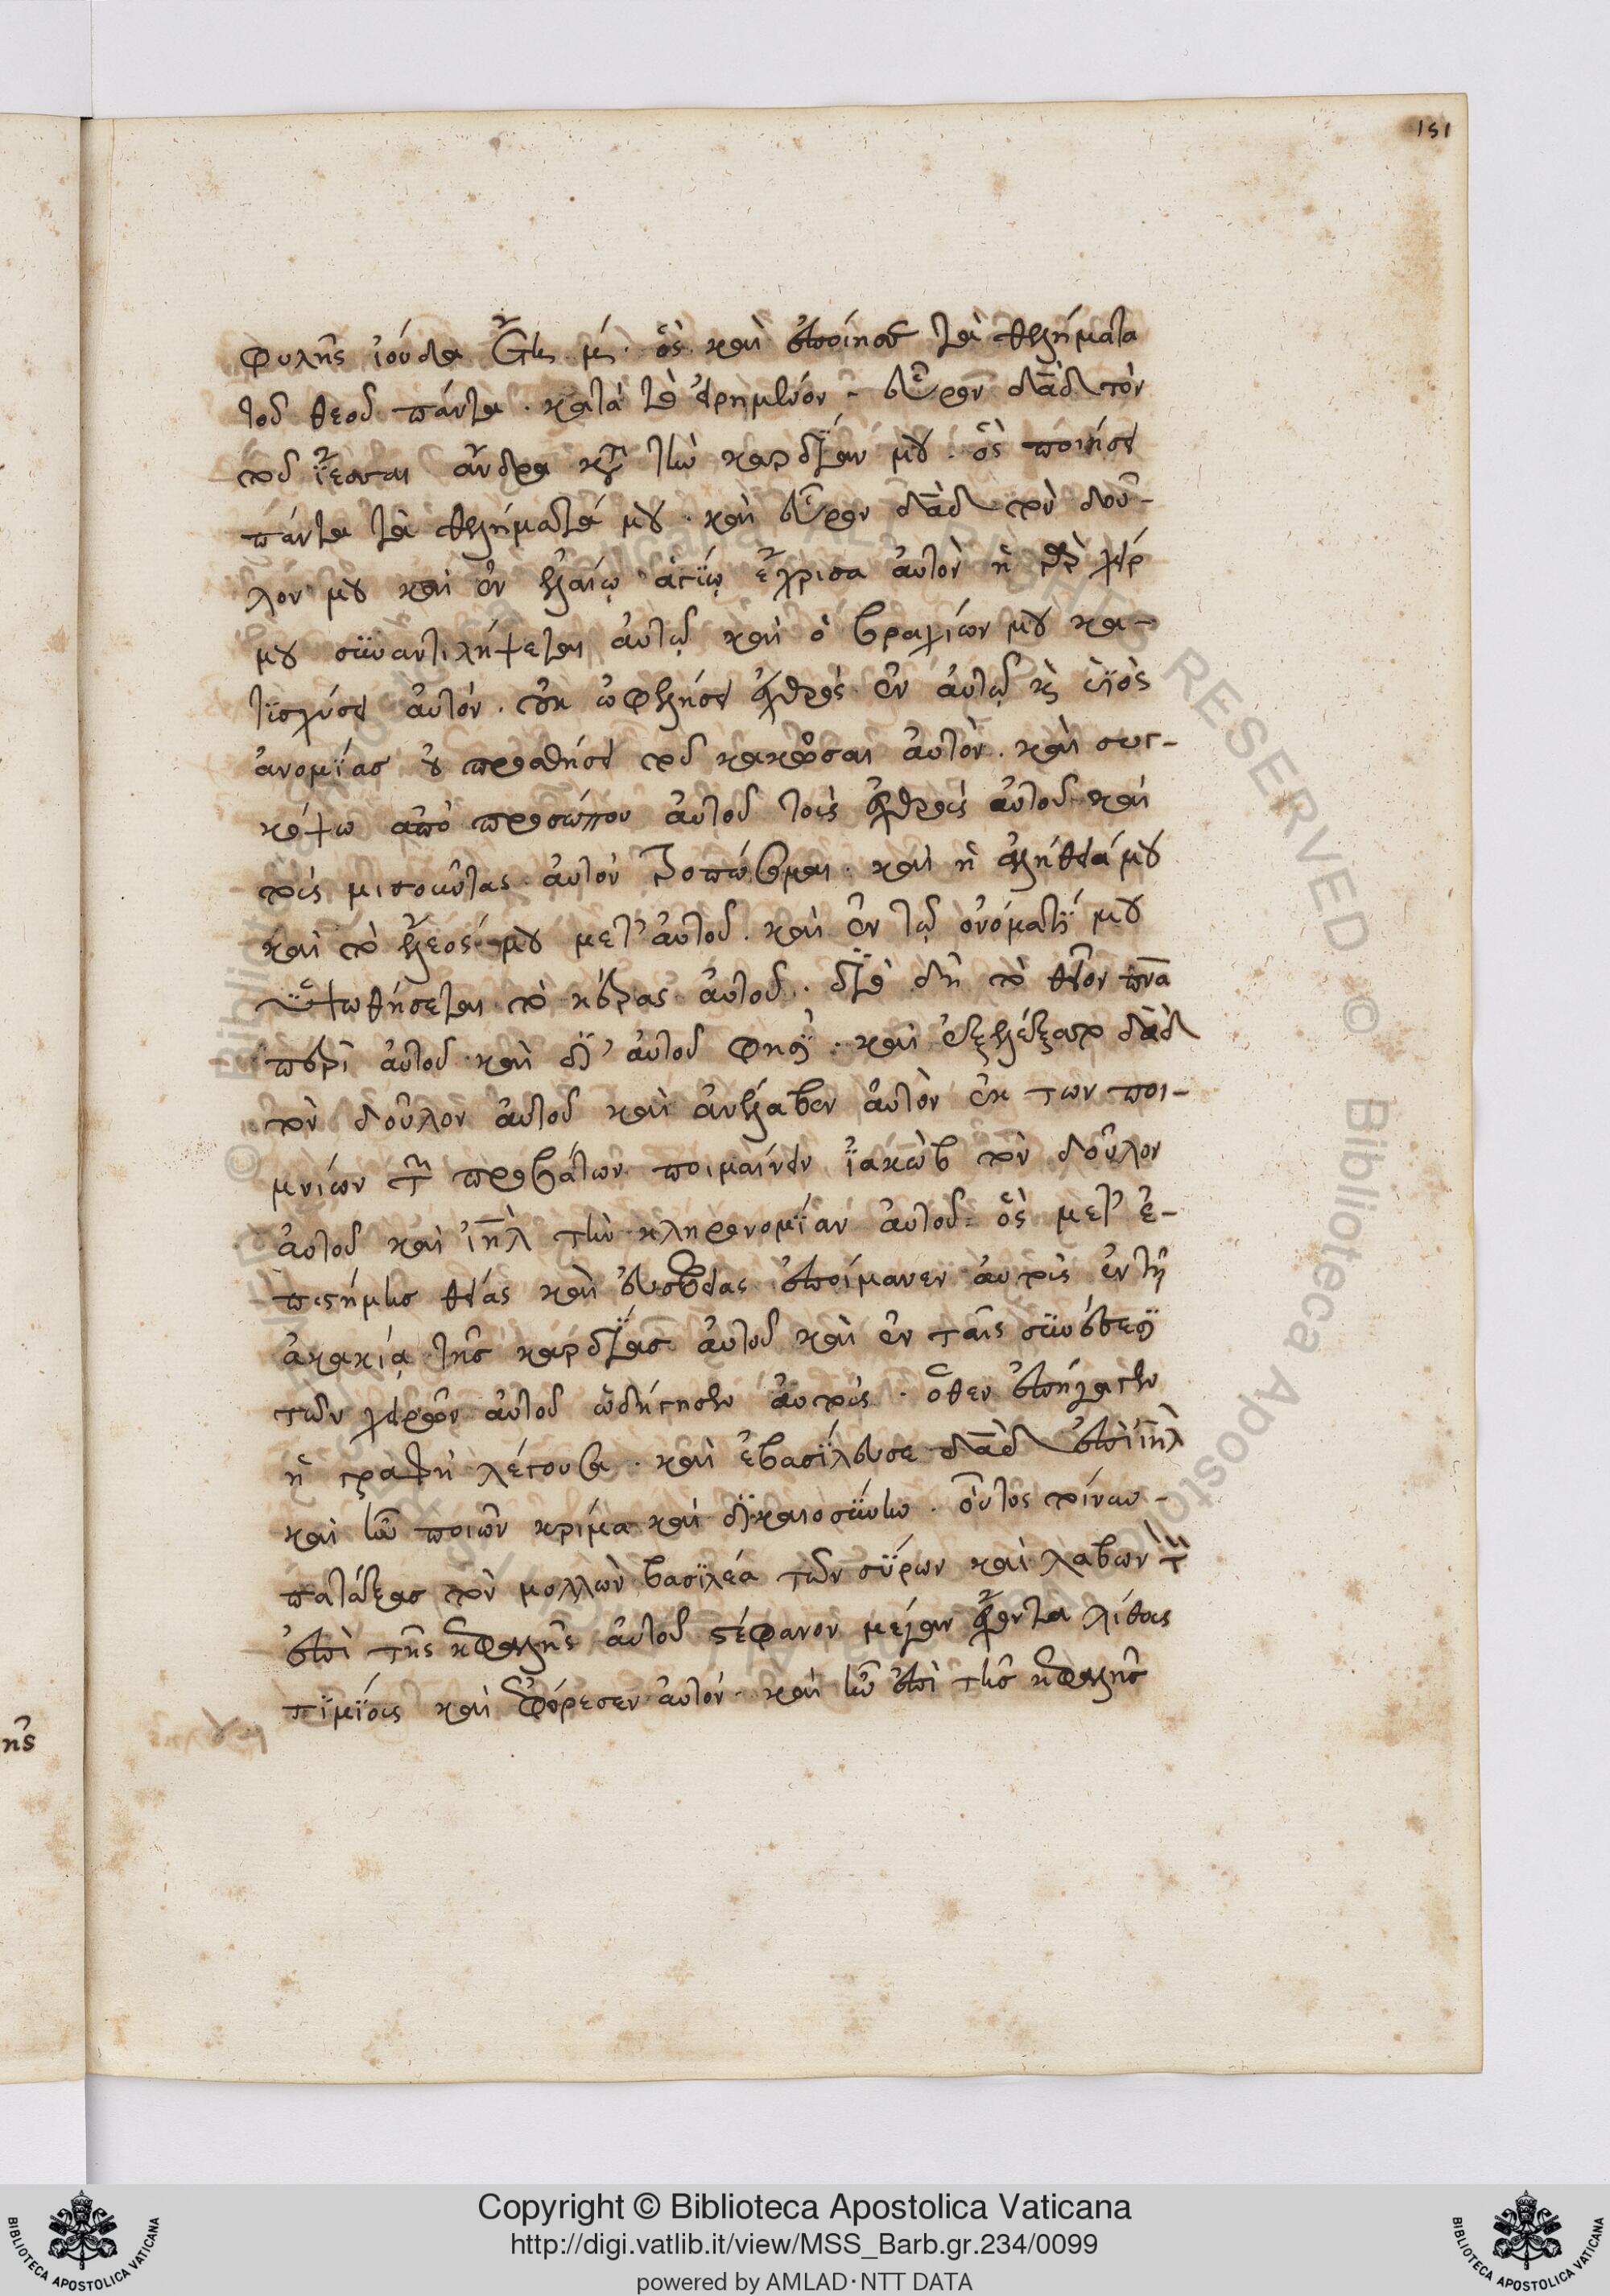 151
φυλῆς ἰούδα ἔτη μ̅. ὃς καὶ ἐποίησε τὰ θελήματα
τοῦ θεοῦ πάντα. κατὰ τὸ εἰρημένον· εὗρον δα̅δ τὸν
τοῦ ἰεσσαι ἄνδρα κατὰ τὴν καρδίαν μου. ὃς ποιήσει
πάντα τὰ θελήματά μου. καὶ εὗρον δα̅δ τὸν δοῦ-
λον μου καὶ ἐν ἐλαίῳ ἁγίῳ ἔχρισα αὐτὸν ἡ γὰρ χείρ
μου συναντιλήψεται αὐτῷ καὶ ὁ βραχίων μου κα-
τισχύσει αὐτόν. οὐκ ὠφελήσει ἐχθρὸς ἐν αὐτῷ κ̀ υἱὸς
ἀνομίας οὐ προσθήσει τοῦ κακῶσαι αὐτόν. καὶ συγ-
κόψω ἀπὸ προσώπου αὐτοῦ τοὺς ἐχθροὺς αὐτοῦ καὶ
τοὺς μισοῦντας αὐτὸν τροπώσομαι. καὶ ἡ ἀλήθειά μου
καὶ τὸ ἔλεός μου μετ' αὐτοῦ. καὶ ἐν τῷ ὀνόματί μου
ὑψωθήσεται τὸ κέρας αὐτοῦ. διὸ δὴ τὸ θεῖον πν̅α
περὶ αὐτοῦ καὶ δι' αὐτοῦ φησί. καὶ ἐξελέξατο δα̅δ
τὸν δοῦλον αὐτοῦ καὶ ἀνέλαβεν αὐτὸν ἐκ τῶν ποι-
μνίων τῶν προβάτων ποιμαίνειν ἰακὼβ τὸν δοῦλον
αὐτοῦ καὶ ἰη̅λ τὴν κληρονομίαν αὐτοῦ· ὃς μετ' ἐ-
πιστήμης θείας καὶ εὐσεβείας ἐποίμανεν αὐτοὺς ἐν τῇ
ἀκακίᾳ τῆς καρδίας αὐτοῦ καὶ ἐν ταῖς συνέσεσι
τῶν χειρῶν αὐτοῦ ὡδήγησεν αὐτούς. ὅθεν ἐπήγαγεν
ἡ γραφὴ λέγουσα. καὶ ἐβασίλευσε δα̅δ ἐπὶ ἰη̅λ
καὶ ἦν ποιῶν κρίμα καὶ δικαιοσύνην. οὗτος τοίνυν-
πατάξας τὸν μολλὼν βασιλέα τῶν σύρων καὶ λαβὼν τὸν
ἐπὶ τῆς κεφαλῆς αὐτοῦ στέφανον μέγαν ἔχοντα λίθους
τιμίους καὶ ἐφόρεσεν αὐτόν. καὶ ἦν ἐπὶ τῆς κεφαλῆς
Copyright © Biblioteca Apostolica Vaticana
http://digi.vatlib.it/view/MSS_Barb.gr.234/0099
powered by AMLAD·NTT DATA